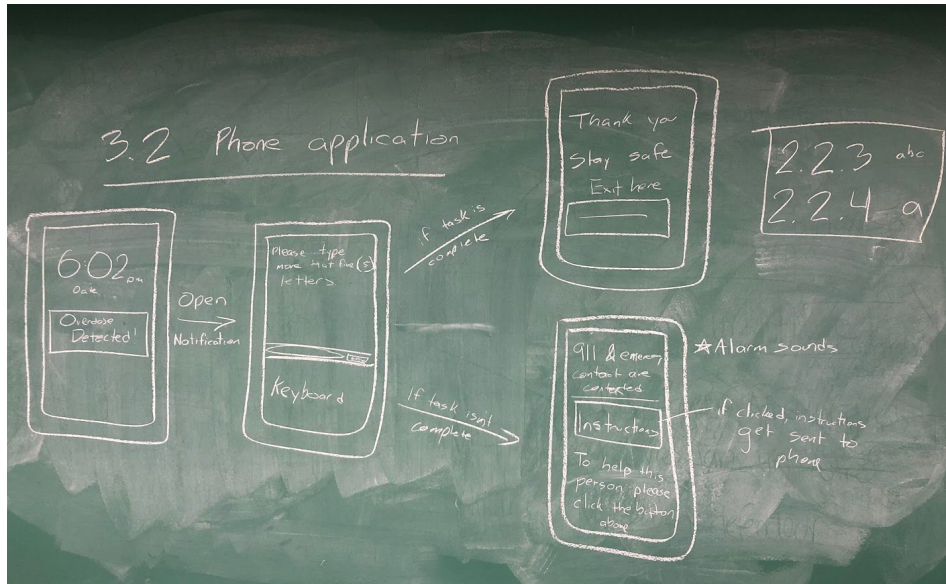 3.2 Phone application
6:02 pm
Date
Overdose
Detected!
Open
Notification
Please type
more that five (5)
letters
Keyboard
if task is
complete
Thank you
Stay safe
Exit here
If task isn't
complete
911 & emergency
contact are
contacted
Instructions
To help this
person please
click the button
above
★Alarm sounds
if clicked, instructions
get sent to
phone
2.2.3 abc
2.2.4 a